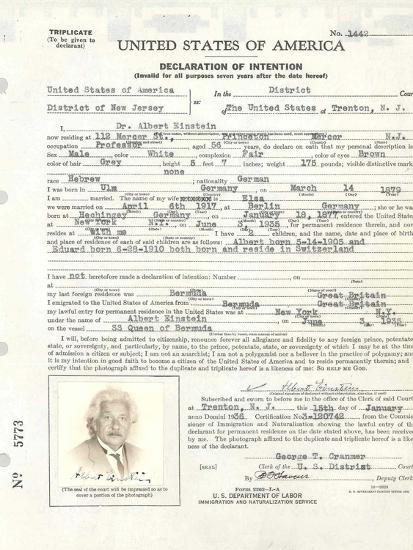 TRIPLICATE
(To be given to declarant)
No. 1442
UNITED STATES OF AMERICA
DECLARATION OF INTENTION
(Invalid for all purposes seven years after the date hereof)
United States of America District Court
District of New Jersey ss: The United States of Trenton, N. J.
I, Dr. Albert Einstein
now residing at 112 Mercer St., Princeton Mercer N.J.
occupation Professor, aged 56 years, do declare on oath that my personal description is:
Sex Male, color White, complexion Fair, color of eyes Brown
color of hair Grey, height 5 feet 7 inches; weight 175 pounds; visible distinctive marks
none
race Hebrew; nationality German
I was born in Ulm Germany, on March 14 1879
I am married. The name of my wife is Elsa
we were married on April 6th 1917, at Berlin Germany; she or he was
born at Hechingen Germany, on January 18, 1877, entered the United States
at New York N.Y., on June 3 1935, for permanent residence therein, and now
resides at With me. I have 2 children, and the name, date and place of birth,
and place of residence of each of said children are as follows: Albert born 5-14-1905 and
Eduard born 6-28-1910 both born and reside in Switzerland
I have not heretofore made a declaration of intention: Number, on
at
my last foreign residence was Bermuda Great Britain
I emigrated to the United States of America from Bermuda Great Britain
my lawful entry for permanent residence in the United States was at New York N.Y.
under the name of Albert Einstein, on June 3 1935
on the vessel SS Queen of Bermuda
I will, before being admitted to citizenship, renounce forever all allegiance and fidelity to any foreign prince, potentate,
state, or sovereignty, and particularly, by name, to the prince, potentate, state, or sovereignty of which I may be at the time
of admission a citizen or subject; I am not an anarchist; I am not a polygamist nor a believer in the practice of polygamy; and
it is my intention in good faith to become a citizen of the United States of America and to reside permanently therein; and I
certify that the photograph affixed to the duplicate and triplicate hereof is a likeness of me: So help me God.
Albert Einstein
Subscribed and sworn to before me in the office of the Clerk of said Court,
at Trenton, N. J. this 15th day of January
anno Domini 1936. Certification No. 3-120742 from the Commissioner
of Immigration and Naturalization showing the lawful entry of the
declarant for permanent residence on the date stated above, has been received
by me. The photograph affixed to the duplicate and triplicate hereof is a likeness
of the declarant.
George T. Cranmer
[SEAL] Clerk of the U. S. District Court.
By Deputy Clerk.
Form 2202-L-A
U. S. DEPARTMENT OF LABOR
IMMIGRATION AND NATURALIZATION SERVICE
Albert Einstein
(The seal of the court will be impressed so as to cover a portion of the photograph)
No 5773